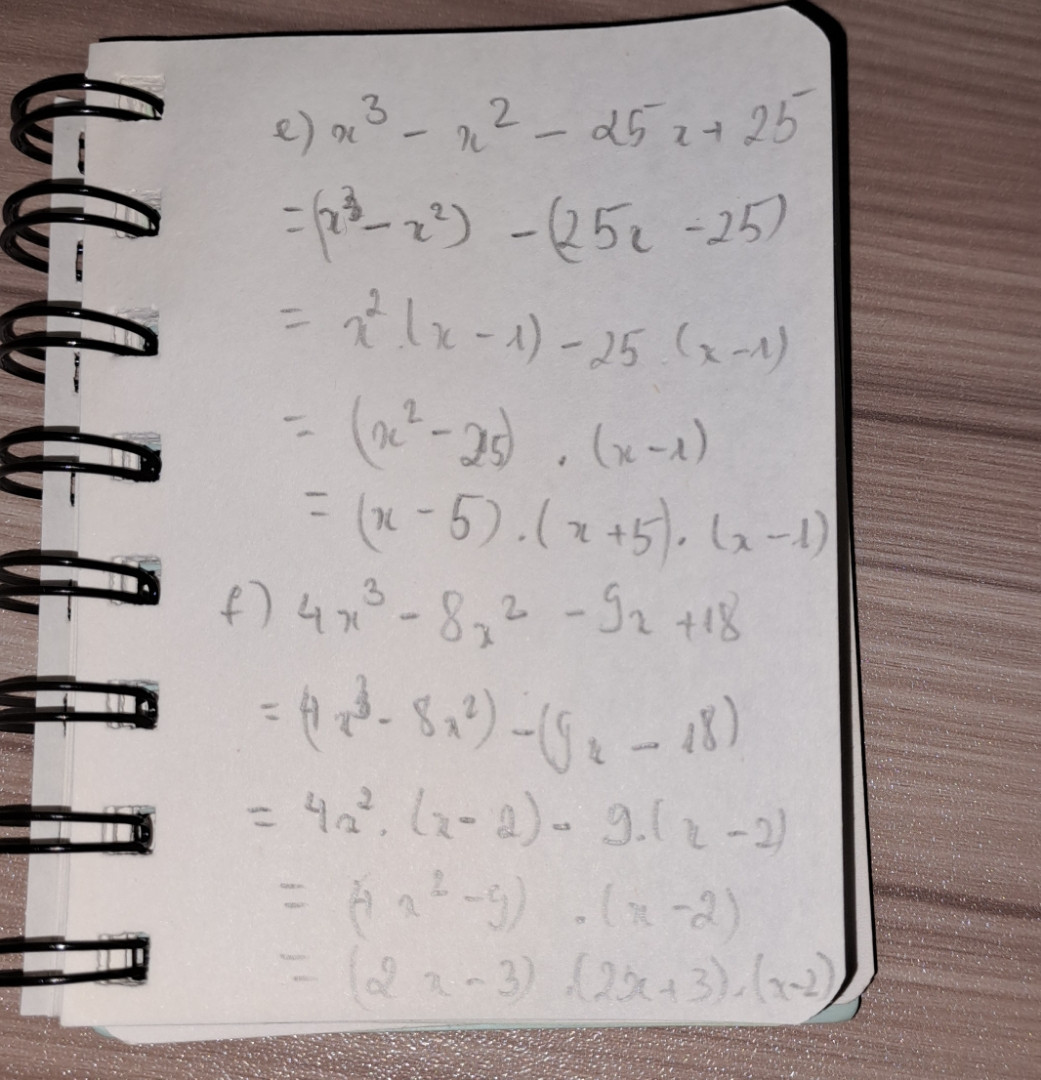 e) x³ - x² - 25x + 25
= (x³ - x²) - (25x - 25)
= x².(x - 1) - 25.(x - 1)
= (x² - 25) . (x - 1)
= (x - 5).(x + 5).(x - 1)
f) 4x³ - 8x² - 9x + 18
= (4x³ - 8x²) - (9x - 18)
= 4x².(x - 2) - 9.(x - 2)
= (4x² - 9) .(x - 2)
= (2x - 3).(2x + 3).(x - 2)